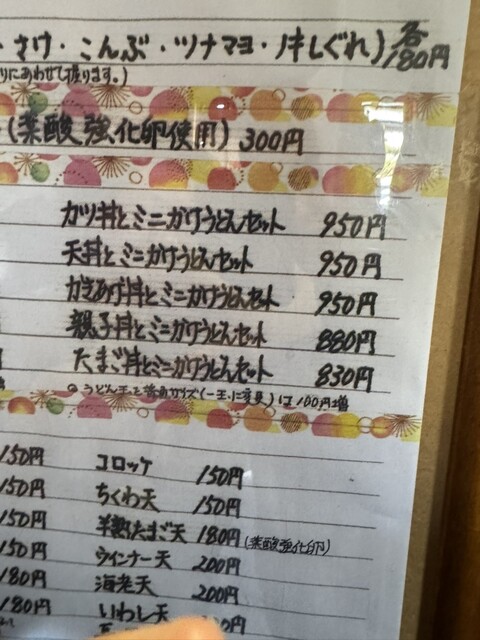 ・さけ・こんぶ・ツナマヨ・しぐれ)各180円
にあわせて握ります。)
(葉酸強化卵使用) 300円
カツ丼とミニかけうどんセット 950円
天丼とミニかけうどんセット 950円
かきあげ丼とミニかけうどんセット 950円
親子丼とミニかけうどんセット 880円
たまご丼とミニかけうどんセット 830円
うどん玉を普通サイズ(一玉に変更)は100円増
150円 コロッケ 150円
150円 ちくわ天 150円
150円 半熟たまご天 180円(葉酸強化卵)
150円 ウインナー天 200円
180円 海老天 200円
180円 いわし天